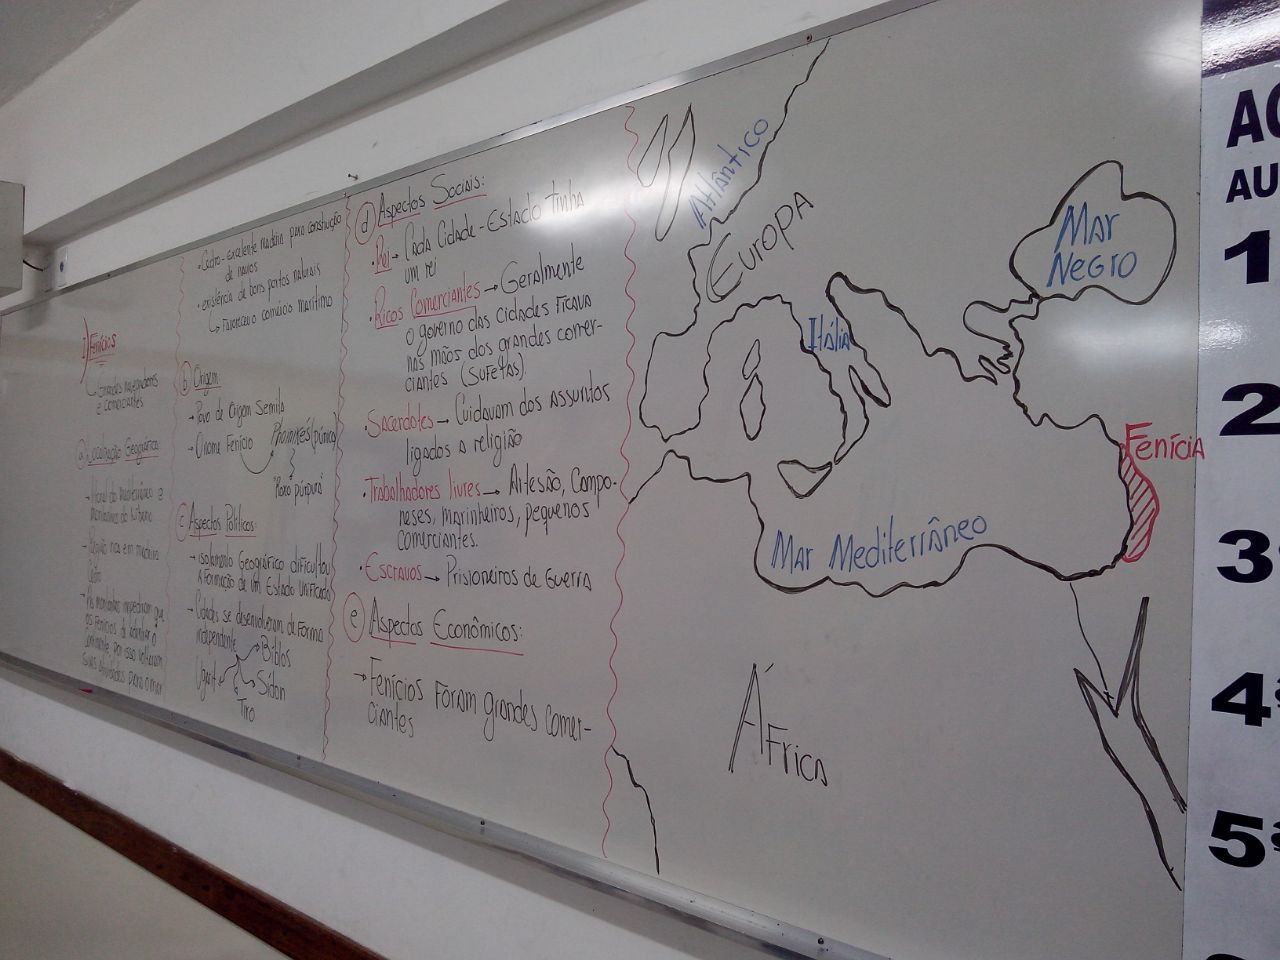 I) Fenícios
Grandes navegadores
e comerciantes
a) Localização Geográfica
→ litoral do mediterrâneo e
montanhas do Líbano
→ Região rica em madeira
→ As montanhas impediram que
os fenícios
por isso voltaram
suas atividades para o mar
Cedro - excelente madeira para construção
de navios
• existência de bons portos naturais
↳ Favoreceu o comércio marítimo
b) Origem
→ Povo de origem Semita
→ O nome Fenício Phoinikes (púnico)
Roxo púrpura
c) Aspectos Políticos:
→ isolamento Geográfico dificultou
a formação de um Estado unificado
→ Cidades se desenvolveram de forma
independente → Biblos
Ugarit Sidon
Tiro
d) Aspectos Sociais:
• Rei → Cada Cidade-Estado tinha
um rei
• Ricos Comerciantes → Geralmente
o governo das cidades ficava
nas mãos dos grandes comer-
ciantes (SUFETAS)
• Sacerdotes → Cuidavam dos assuntos
ligados a religião
• Trabalhadores livres → Artesão, Campo-
neses, marinheiros, pequenos
comerciantes.
• Escravos → Prisioneiros de Guerra
e) Aspectos Econômicos:
→ Fenícios foram grandes comer-
ciantes
Atlântico
Europa
Itália
Mar
Negro
Fenícia
Mar Mediterrâneo
África
AU
1
2
3ª
4ª
5ª